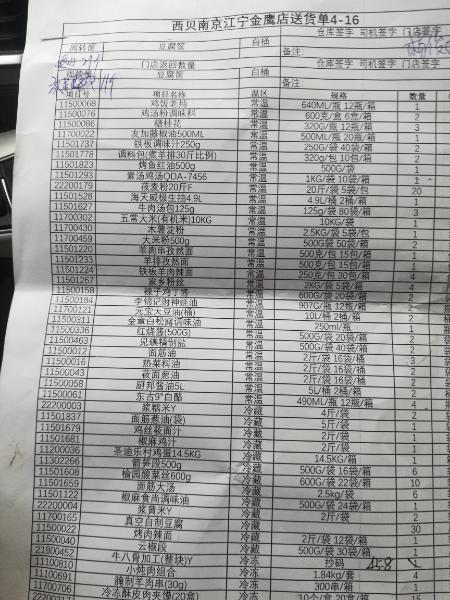 西贝南京江宁金鹰店送货单4-16
仓库签字 司机签字 门店签字
周转筐 豆腐筐 白桶
备注:
门店返回数量
仓库签字 司机签字 门店签字
周转筐 豆腐筐 白桶
备注:
项目号 项目名称 温区 规格 数量
11500068 鸡饭老抽 常温 640ML/瓶 12瓶/箱 1
11500076 鸡汤粉调味料 常温 600克/盒 6盒/箱 2
11500086 糖桂花 常温 320G/瓶 12瓶/箱 3
11700022 友加藤椒油500ML 常温 500ML/瓶 20瓶/箱 1
11501737 铁板调味汁250g 常温 250G/袋 40袋/箱 2
11501778 调料包(煮羊排30斤比例) 常温 320g/包 10包/箱 2
11501823 烤鱼红油500g 常温 500G/袋 1
11501293 素汤鸡汤QDA-7456 常温 1KG/袋 10袋/箱 1
22200179 莜麦粉20斤F 常温 20斤/袋 5袋/包 20
11501528 海天威极生抽4.9L 常温 4.9L/桶 2桶/箱 1
11501627 牛肉汤包125g 常温 125g/袋 80袋/箱 3
11700302 五常大米(有机米)10KG 常温 10KG/袋 1
11700430 木薯淀粉 常温 2.5KG/袋 5袋/包 1
11700459 大米粉500g 常温 500G/袋 50袋/箱 2
11501220 羊肉串孜然面 常温 500克/包 15包/箱 1
11501233 羊排孜然面 常温 500克/包 15包/箱 1
11501224 铁板羊肉辣面 常温 250克/包 30包/箱 4
11501267 家乡粉丝 常温 2KG/袋 5袋/箱 4
11500158 辣子鸡丁酱 常温 600G/袋 20袋/箱 2
11500184 李锦记财神蚝油 常温 907G/瓶 12瓶/箱 2
11700121 元宝大豆油(桶) 常温 10L/桶 2桶/箱 2
11500311 金蕈白松露调味油 常温 250ml/瓶 1
11500336 红烧酱(500G) 常温 500G/袋 20袋/箱 1
11500463 见碘精制盐 常温 500G/袋 40袋/箱 2
11500012 面筋油 常温 2斤/袋 16袋/桶 2
11500016 热菜料油 常温 2斤/袋 16袋/桶 3
11500043 莜面葱油 常温 2斤/袋 16袋/箱 2
11500058 厨邦酱油5L 常温 5L/桶 2桶/箱 2
11500061 东古9°白醋 常温 490ML/瓶 12瓶/箱 4
22200003 浆糯米Y 冷藏 4斤/袋 2
11501837 面筋葱油(袋) 冷藏 2斤/袋 2
11501679 鸡丝莜面汁 冷藏 5斤/袋 1
11501681 椒麻鸡汁 冷藏 2斤/袋 1
11200036 圣迪乐村鸡蛋14.5KG 冷藏 14.5KG/箱 1
11302266 箭笋段500g 冷藏 500G/袋 16袋/箱 6
11501608 榆园酸菜丝600g 冷藏 600G/袋 22袋/箱 10
11501659 面筋大汤 冷藏 2.5kg/袋 6
11501122 椒麻食尚调味油 冷藏 500G/袋 24袋/箱 1
22200004 浆黄米Y 冷藏 2斤/袋 2
11700165 真空自制豆腐 冷藏 30
11500022 烤肉辣面 冷藏 2斤/袋 12袋/箱 1
11500040 云椒段 冷藏 500G/袋 30袋/箱 1
21800452 牛八骨加工(整块)Y 冷冻 抄码 45.8
11100810 小炖肉组合 冷冻 1.84kg/套 4
11100691 腌制羊肉串(30g) 冷冻 300串/箱 1
11700706 冷冻酥皮肉夹馍(20盒) 冷冻 10个/盒 20盒/箱 15